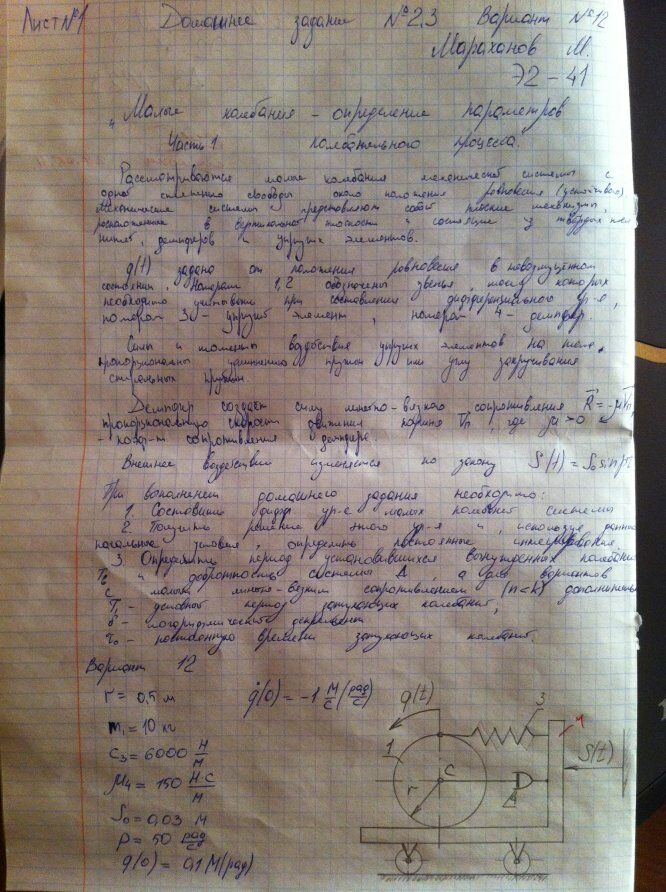 Лист №1 Домашнее задание №2,3 Вариант №12
Мараханов М.
Э2-41
"Малые колебания - определение параметров
Часть 1. колебательного процесса.
Рассматриваются малые колебания механической системы с
одной степенью свободы около положения равновесия (устойчивого)
Механические системы представляют собой плоские механизмы,
расположенные в вертикальной плоскости состоящие из твердых тел
нитей, демпферов и упругих элементов.
q(t) задана от положения равновесия в невозмущенном
состоянии. Номерами 1,2 обозначены звенья, массы которых
необходимо учитывать при составлении дифференциального ур-е,
номером 3 - упругий элемент, номером 4 - демпфер.
Силы и моменты воздействия упругих элементов на тела
пропорциональны удлинению пружин или углу закручивания
спиральных пружин.
Демпфер создает силу линейно-вязкого сопротивления R = -μVп,
пропорциональную скорости движения поршня Vп, где μ>0
- коэф-т сопротивления демпфера.
Внешнее воздействие изменяется по закону S(t) = S₀ sin pt
При выполнении домашнего задания необходимо:
1. Составить дифф. ур-е малых колебаний системы
2. Получить решение этого ур-я и, используя данные
начальные условия, определить постоянные интегрирования.
3. Определить период установившихся вынужденных колебаний
Tв и добротность системы Д, а для вариантов
с малым линейно-вязким сопротивлением (n<k) дополнительно
T₁ - условный период затухающих колебаний,
δ - логарифмический декремент
τ₀ - постоянную времени затухающих колебаний.
Вариант 12
r = 0,5 м q̇(0) = -1 м/с (рад/с)
m₁ = 10 кг
c₃ = 6000 Н/м
μ₄ = 150 Н·с/м
S₀ = 0,03 м
p = 50 рад/с
q(0) = 0,1 м (рад)
q(t) 3 4
1 S(t)
C
r